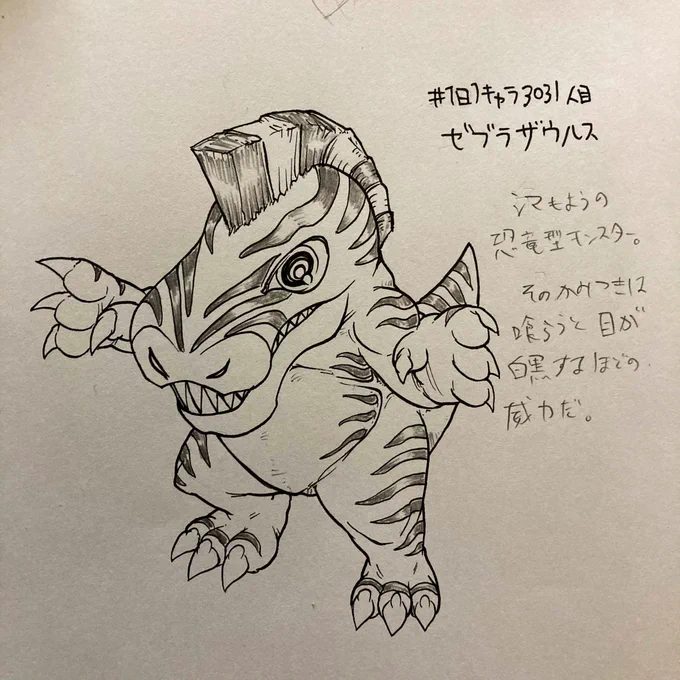 #1日1キャラ3031人目
ゼブラザウルス
シマもようの
恐竜型モンスター。
そのかみつきは
喰らうと目が
白黒するほどの
威力だ。